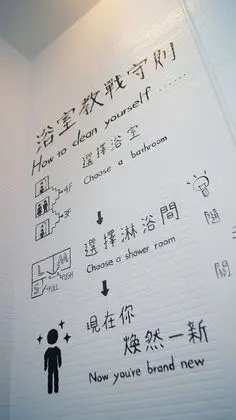 浴室教戰守則
How to clean yourself ......
選擇浴室
Choose a bathroom
4F
3F
選擇淋浴間
Choose a shower room
隨
關
L
M
S
PUSH
PULL
現在你
煥然一新
Now you're brand new